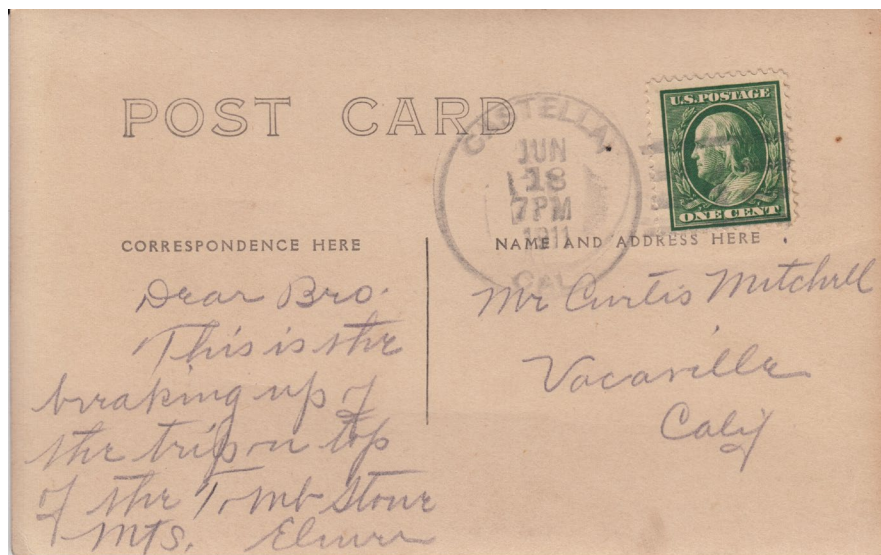 POST CARD
CASTELLA,
JUN
18
7PM
1911
CAL.
U.S. POSTAGE
ONE CENT
CORRESPONDENCE HERE
NAME AND ADDRESS HERE
Dear Bro.
This is the
breaking up of
the trip on top
of the Tomb Stone
Mts. Elmer
Mr Curtis Mitchell
Vacaville
Calif